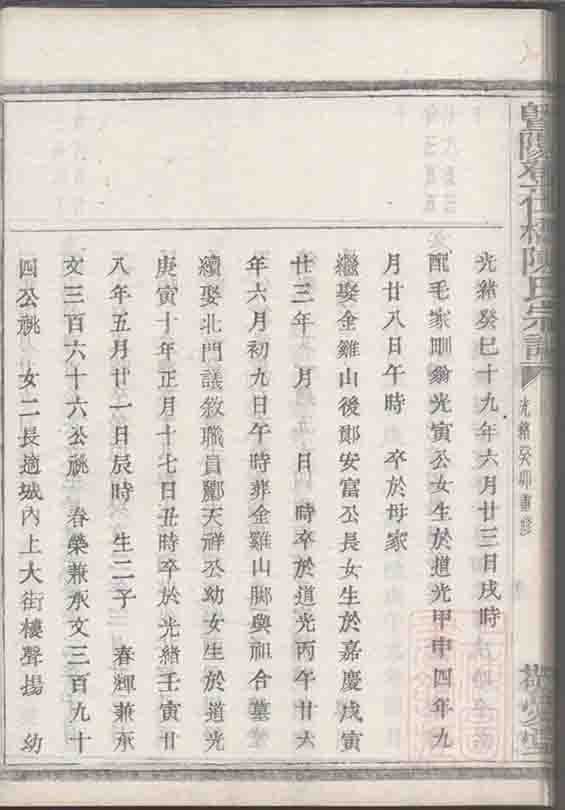 暨陽 橋陳氏宗譜
光緒癸卯重修
光緒癸巳十九年六月廿三日戌時
配毛家 翁光寅公女生於道光甲申四年九
月廿八日午時 卒於母家
繼娶金雞山後鄭安富公長女生於嘉慶戊寅
廿三年 月 日 時卒於道光丙午廿六
年六月初九日午時葬金雞山腳與祖合墓
續娶北門議敘職員酈天祥公幼女生於道光
庚寅十年正月十七日丑時卒於光緒壬寅廿
八年五月廿一日辰時 生二子 春輝兼承
文三百六十六公祧 春榮兼承文三百九十
四公祧 女二長適城內上大街樓聲揚 幼